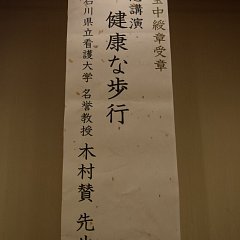 宝中綬章受章
講演
健康な歩行
石川県立看護大学 名誉教授 木村賛 先生